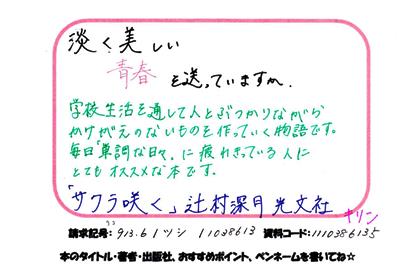 淡く美しい
青春を送っていますか.
学校生活を通して人とぶつかりながら
かけがえのないものを作っていく物語です。
毎日「単調な日々」に疲れきっている人に
とてもオススメな本です.
「サクラ咲く」辻村深月 光文社
キリン
請求記号: 913.6 1 ツシ 11038613 資料コード: 1110386135
本のタイトル・著者・出版社、おすすめポイント、ペンネームを書いてね☆